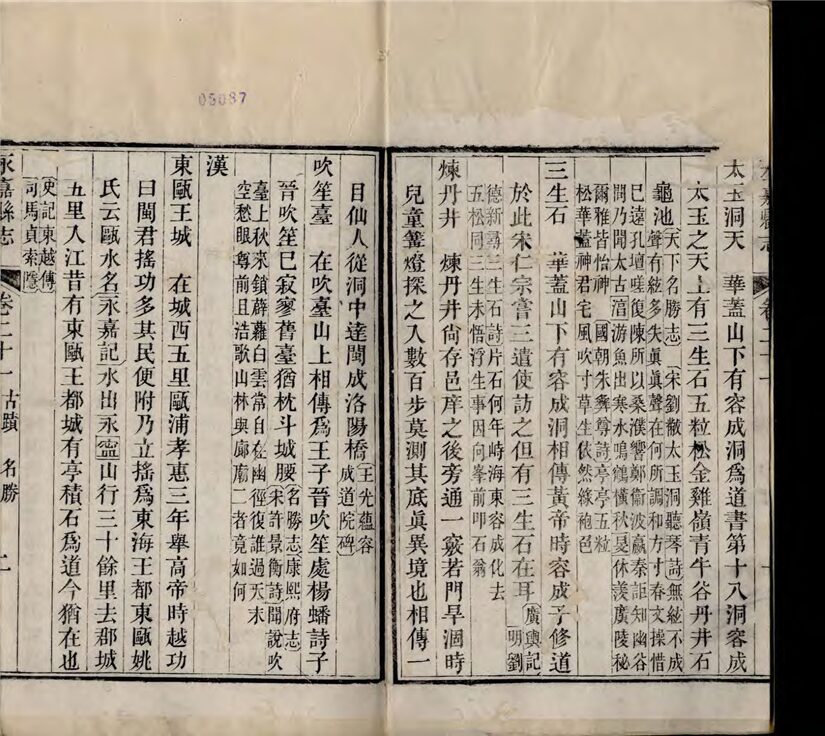 太玉洞天　華蓋山下有容成洞爲道書第十八洞容成
太玉之天上有三生石五粒松金雞嶺青牛谷丹井石
龜池天下名勝志　宋劉黻太玉洞聽琴詩無絃不成
聲有絃多失眞眞聲在何所調和方寸春文操惜
已遠孔壇嗟復陳所以桑濮響鄭衞波嬴秦詎知幽谷
間乃聞太古湻游魚出寒水鳴鶴橫秋旻休羨廣陵秘
爾雅皆怡神　國朝朱彝尊詩亭亭五粒
松華蓋神君宅風吹寸草生依然綠袍邑
三生石　華蓋山下有容成洞相傳黃帝時容成子修道
於此宋仁宗嘗三遣使訪之但有三生石在耳廣輿記
明劉
德新尋三生石詩片石何年峙海東容成化去
五松同三生未悟浮生事因向峯前叩石翁
煉丹井　煉丹井尙存邑庠之後旁通一竅若門旱涸時
兒童篝燈探之入數百步莫測其底眞異境也相傳一
目仙人從洞中達閩成洛陽橋王光蘊容
成道院碑
吹笙臺　在吹臺山上相傳爲王子晉吹笙處楊蟠詩子
晉吹笙已寂寥舊臺猶枕斗城腰名勝志康熙府志
宋許景衡詩聞說吹
臺上秋來鎖薜蘿白雲常自在幽徑復誰過天末
空愁眼尊前且浩歌山林與廊廟二者竟如何
漢
東甌王城　在城西五里甌浦孝惠三年舉高帝時越功
曰閩君搖功多其民便附乃立搖爲東海王都東甌姚
氏云甌水名永嘉記水出永寧山行三十餘里去郡城
五里入江昔有東甌王都城有亭積石爲道今猶在也
史記東越傳
司馬貞索隱
永嘉縣志　卷二十一　古蹟　名勝　二
09087